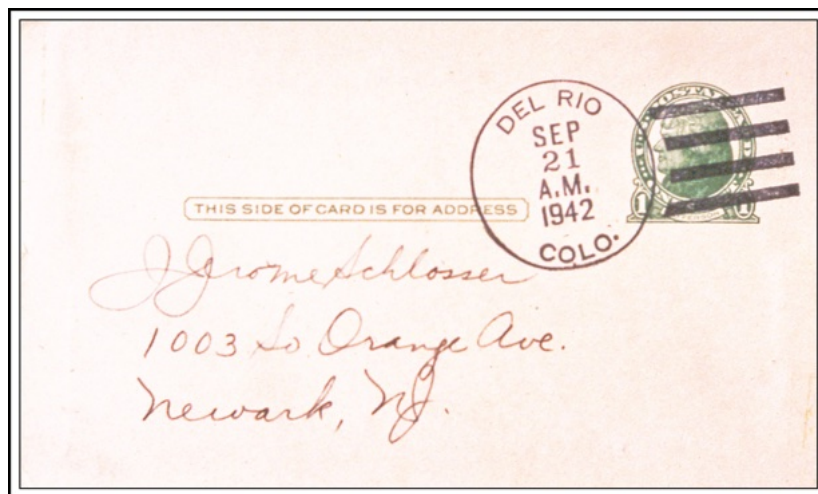 DEL RIO
SEP
21
A.M.
1942
COLO.
THIS SIDE OF CARD IS FOR ADDRESS
J Jerome Schlosser
1003 So Orange Ave.
Newark, NJ.